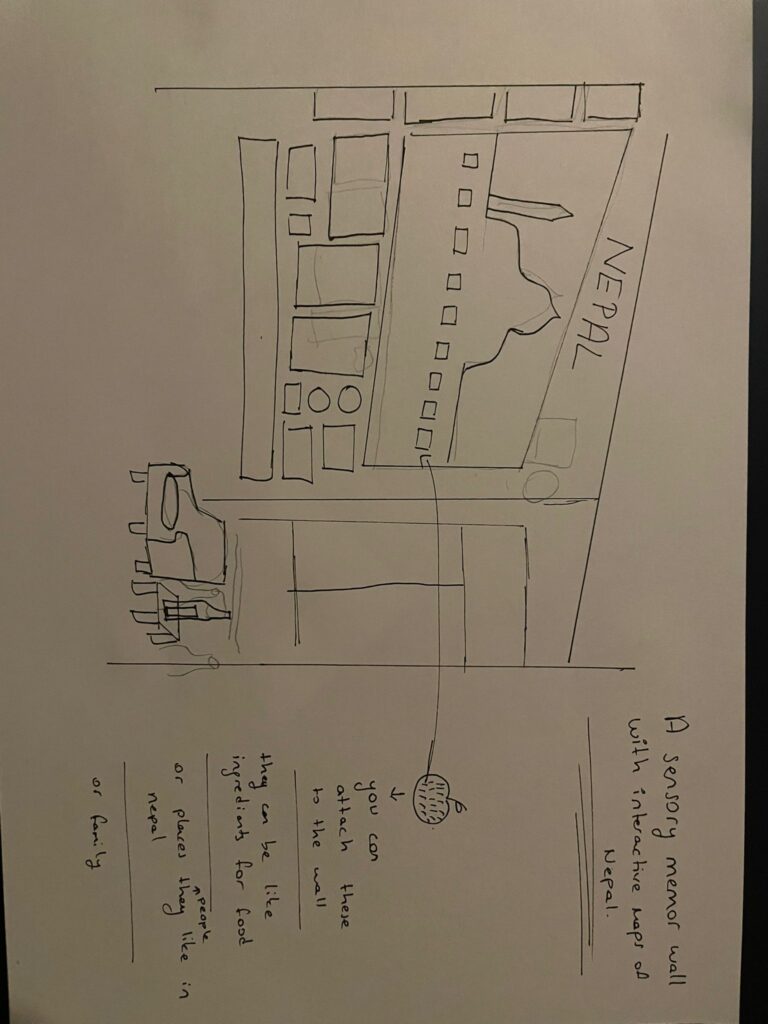 NEPAL
A sensory memor wall
with interactive maps of
Nepal.
you can
attach these
to the wall
they can be like
ingredients for food
or places they like in
people
nepal
or family